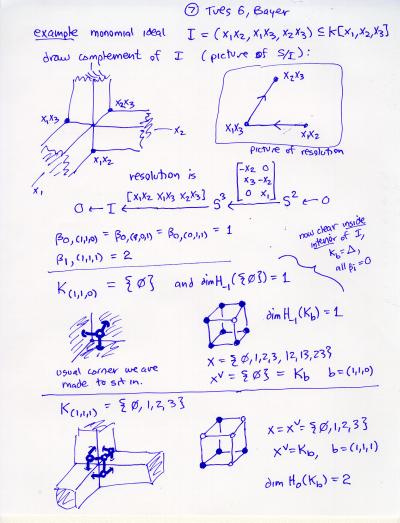 ⑦ Tues 6, Bayer
example monomial ideal I = (x₁x₂, x₁x₃, x₂x₃) ⊆ k[x₁,x₂,x₃]
draw complement of I (picture of S/I):
x₁x₃
x₂x₃
x₂
x₁x₂
x₁
x₂x₃
x₁x₃
x₁x₂
picture of resolution
resolution is
[x₁x₂ x₁x₃ x₂x₃]
-x₂ 0
x₃ -x₂
0 x₁
0 ← I ← S³ ← S² ← 0
β₀,(1,1,0) = β₀,(1,0,1) = β₀,(0,1,1) = 1
β₁,(1,1,1) = 2
now clear inside
interior of I,
K_b = Δ,
all βᵢ = 0
K(1,1,0) = {∅} and dim H₋₁({∅}) = 1
dim H₋₁(K_b) = 1
usual corner we are
made to sit in.
X = {∅,1,2,3, 12,13,23}
X^v = {∅} = K_b b = (1,1,0)
K(1,1,1) = {∅,1,2,3}
X = X^v = {∅,1,2,3}
X^v = K_b, b = (1,1,1)
dim H₀(K_b) = 2